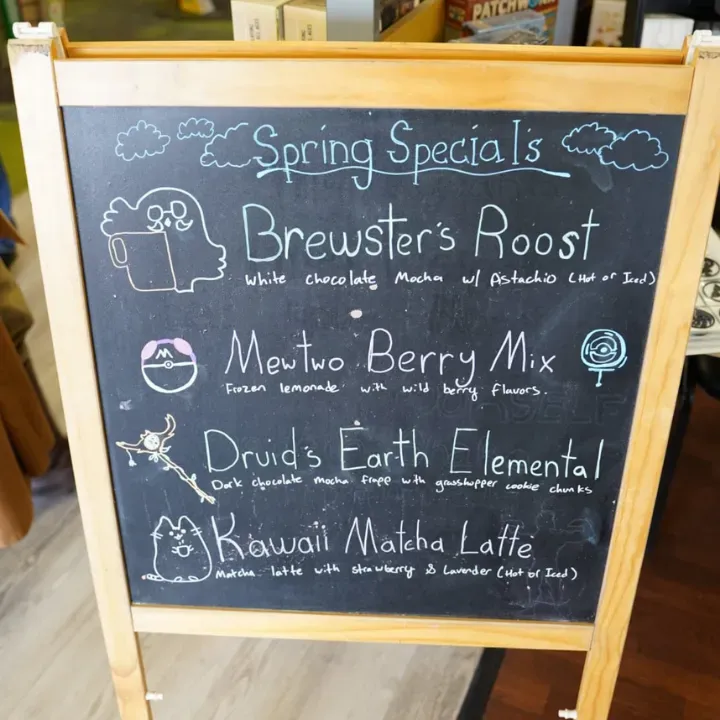 PATCHWORK
Spring Specials
Brewster's Roost
White chocolate Mocha w/ Pistachio (Hot or Iced)
M
Mewtwo Berry Mix
Frozen lemonade with wild berry flavors.
Druid's Earth Elemental
Dark chocolate mocha frappe with grasshopper cookie chunks
Kawaii Matcha Latte
Matcha latte with strawberry & Lavender (Hot or Iced)